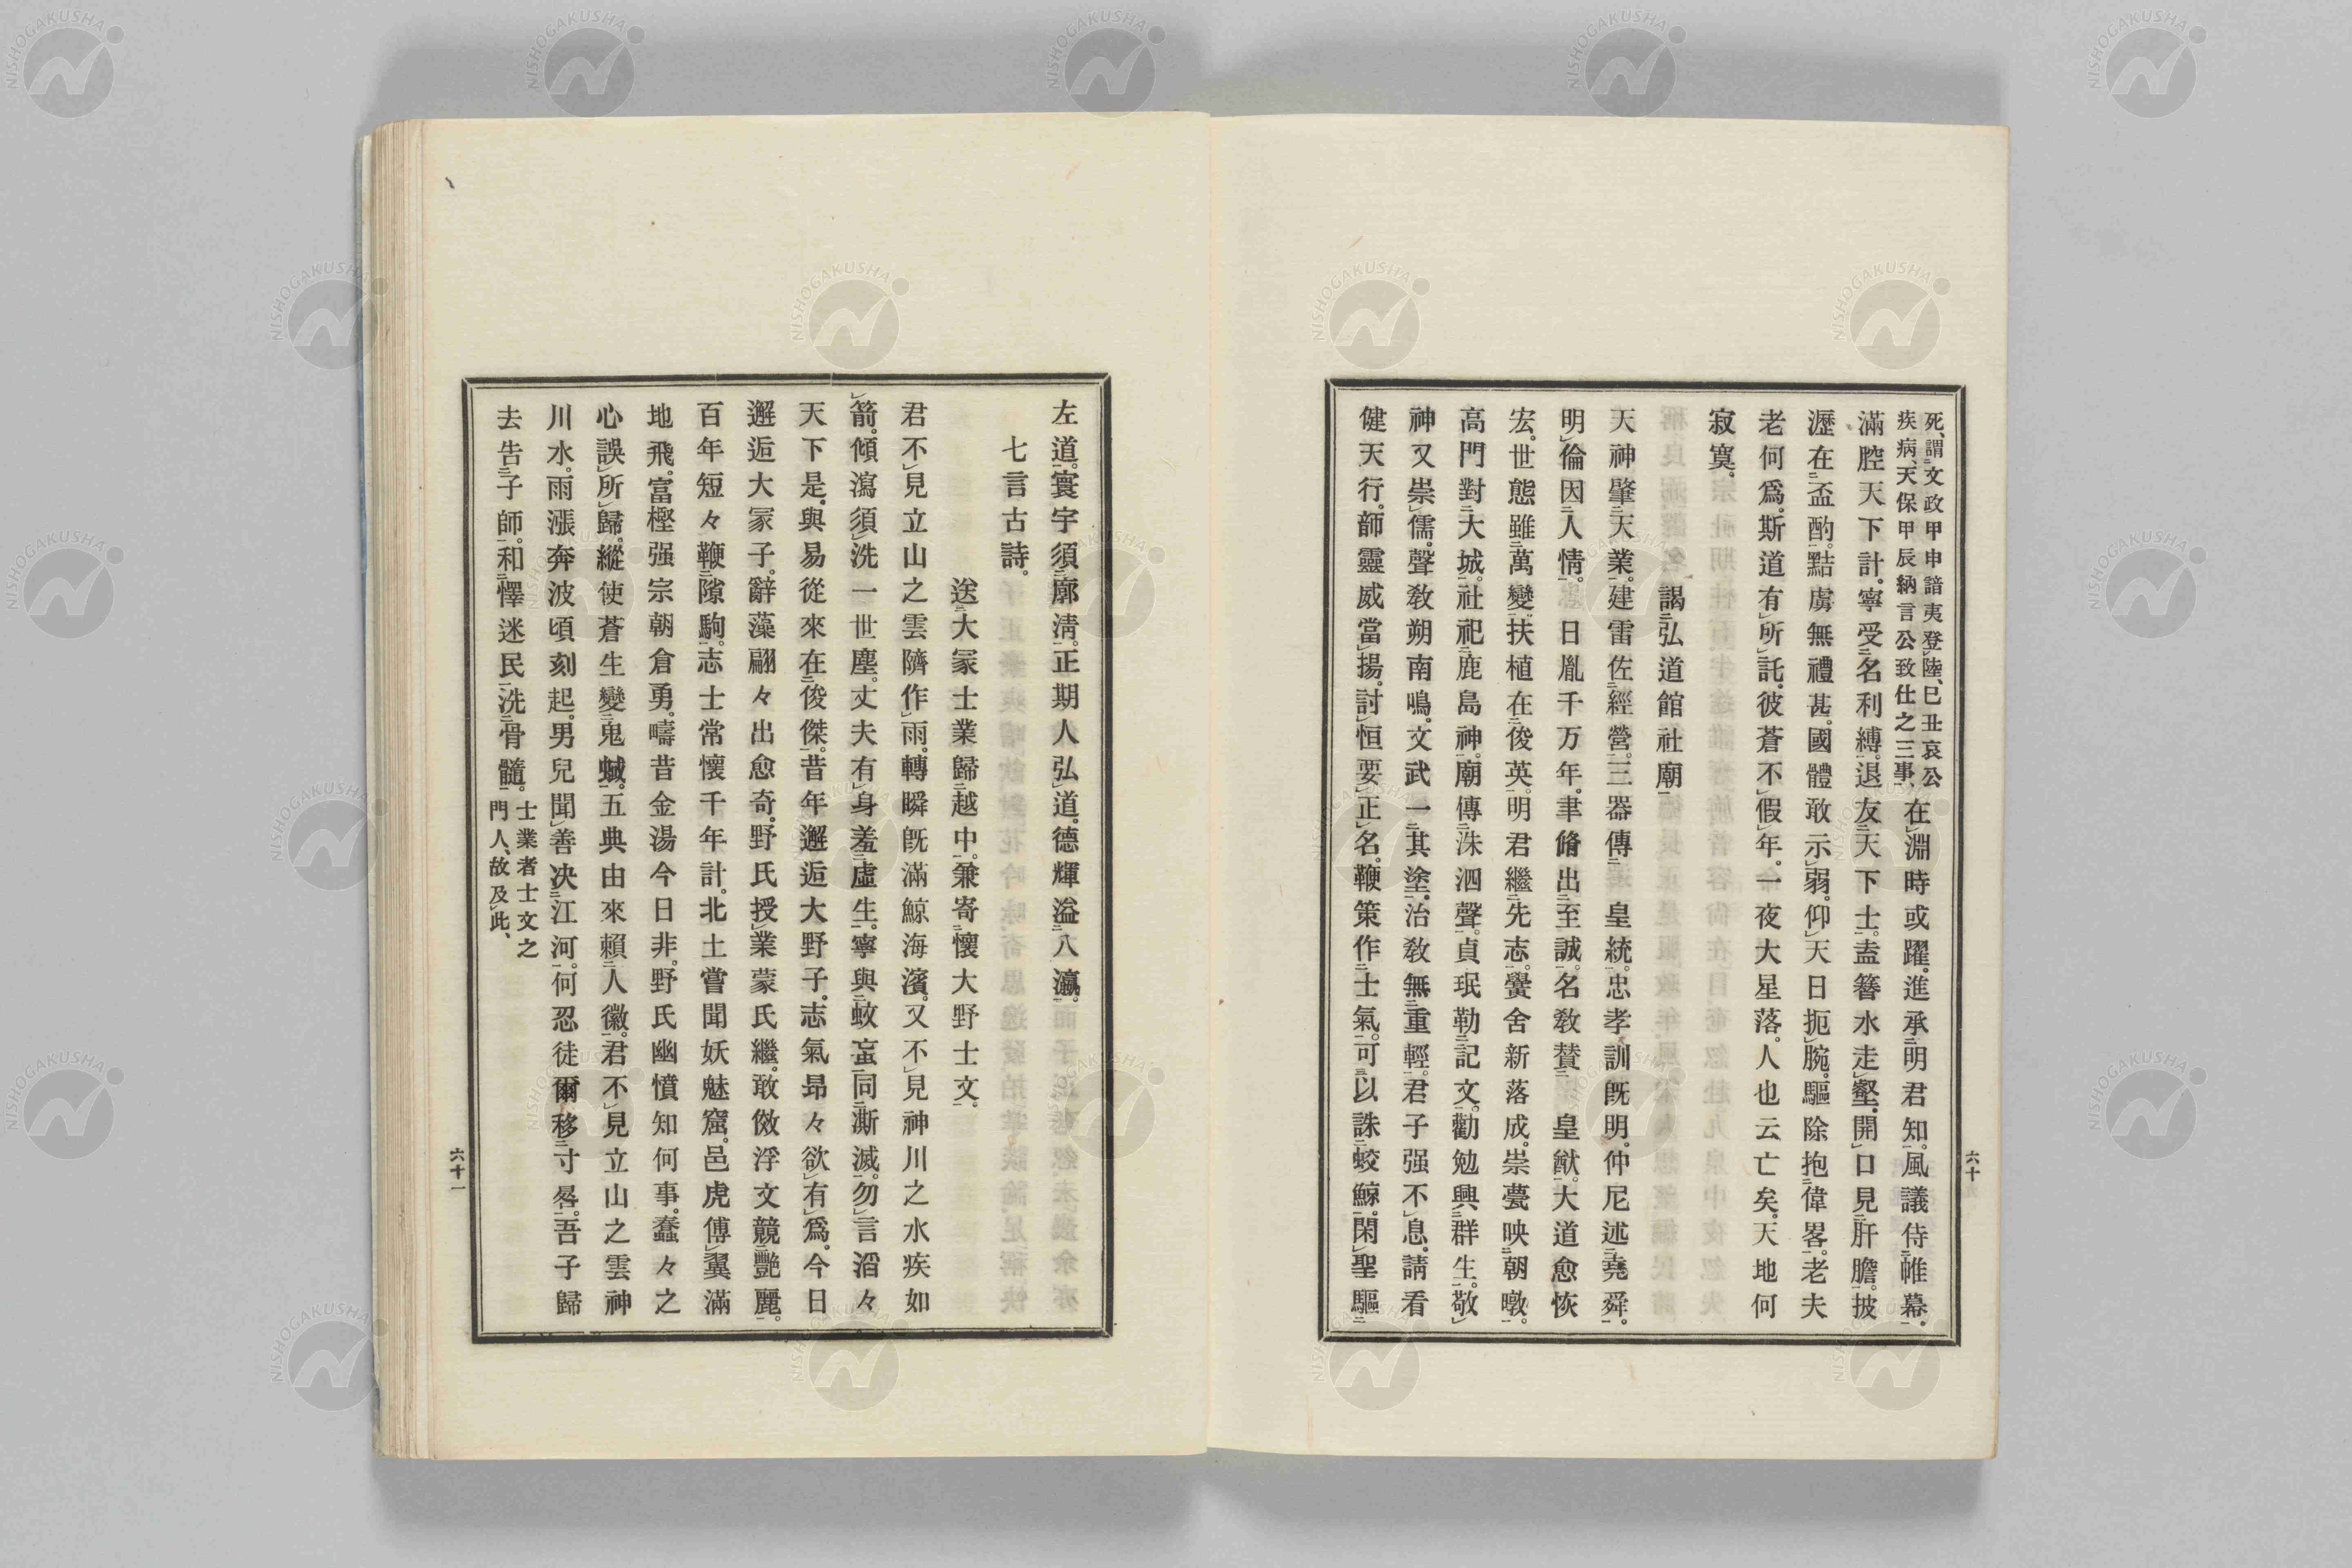 死、謂文政甲申諳夷登陸、巳丑哀公
疾病、天保甲辰納言公致仕之三事、
在淵時或躍。進承明君知。風議侍帷幕。
滿腔天下計。寧受名利縛。退友天下士。盍簪水走壑。開口見肝膽。披
瀝在盃酌。點虜無禮甚。國體敢示弱。仰天日扼腕。驅除抱偉畧。老夫
老何爲。斯道有所託。彼蒼不假年。一夜大星落。人也云亡矣。天地何
寂寞。
謁弘道館社廟
天神肇天業。建雷佐經營。三器傳 皇統。忠孝訓旣明。仲尼述堯舜。
明倫因人情。日胤千万年。聿脩出至誠。名敎贊 皇猷。大道愈恢
宏。世態雖萬變。扶植在俊英。明君繼先志。黌舍新落成。崇甍映朝暾。
高門對大城。社祀鹿島神。廟傳洙泗聲。貞珉勒記文。勸勉興群生。敬
神又崇儒。聲敎朔南鳴。文武一其塗。治敎無重輕。君子强不息。請看
健天行。師靈威當揚。討恒要正名。鞭策作士氣。可以誅蛟鯨。閑聖驅
六十
左道。寰宇須廓淸。正期人弘道。德輝溢八瀛。
七言古詩。
送大冢士業歸越中。兼寄懷大野士文。
君不見立山之雲隮作雨。轉瞬旣滿鯨海濱。又不見神川之水疾如
箭。傾瀉須洗一世塵。丈夫有身羞虛生。寧與蚊䖟同澌滅。勿言滔々
天下是。與易從來在俊傑。昔年邂逅大野子。志氣昂々欲有爲。今日
邂逅大冢子。辭藻翩々出愈奇。野氏授業蒙氏繼。敢倣浮文競艷麗。
百年短々鞭隙駒。志士常懷千年計。北土嘗聞妖魅窟。邑虎傅翼滿
地飛。富樫强宗朝倉勇。疇昔金湯今日非。野氏幽憤知何事。蠢々之
心誤所歸。縱使蒼生變鬼蜮。五典由來賴人徽。君不見立山之雲神
川水。雨漲奔波頃刻起。男兒聞善决江河。何忍徒爾移寸晷。吾子歸
去告子師。和懌迷民洗骨髓。
士業者士文之
門人、故及此、
六十一